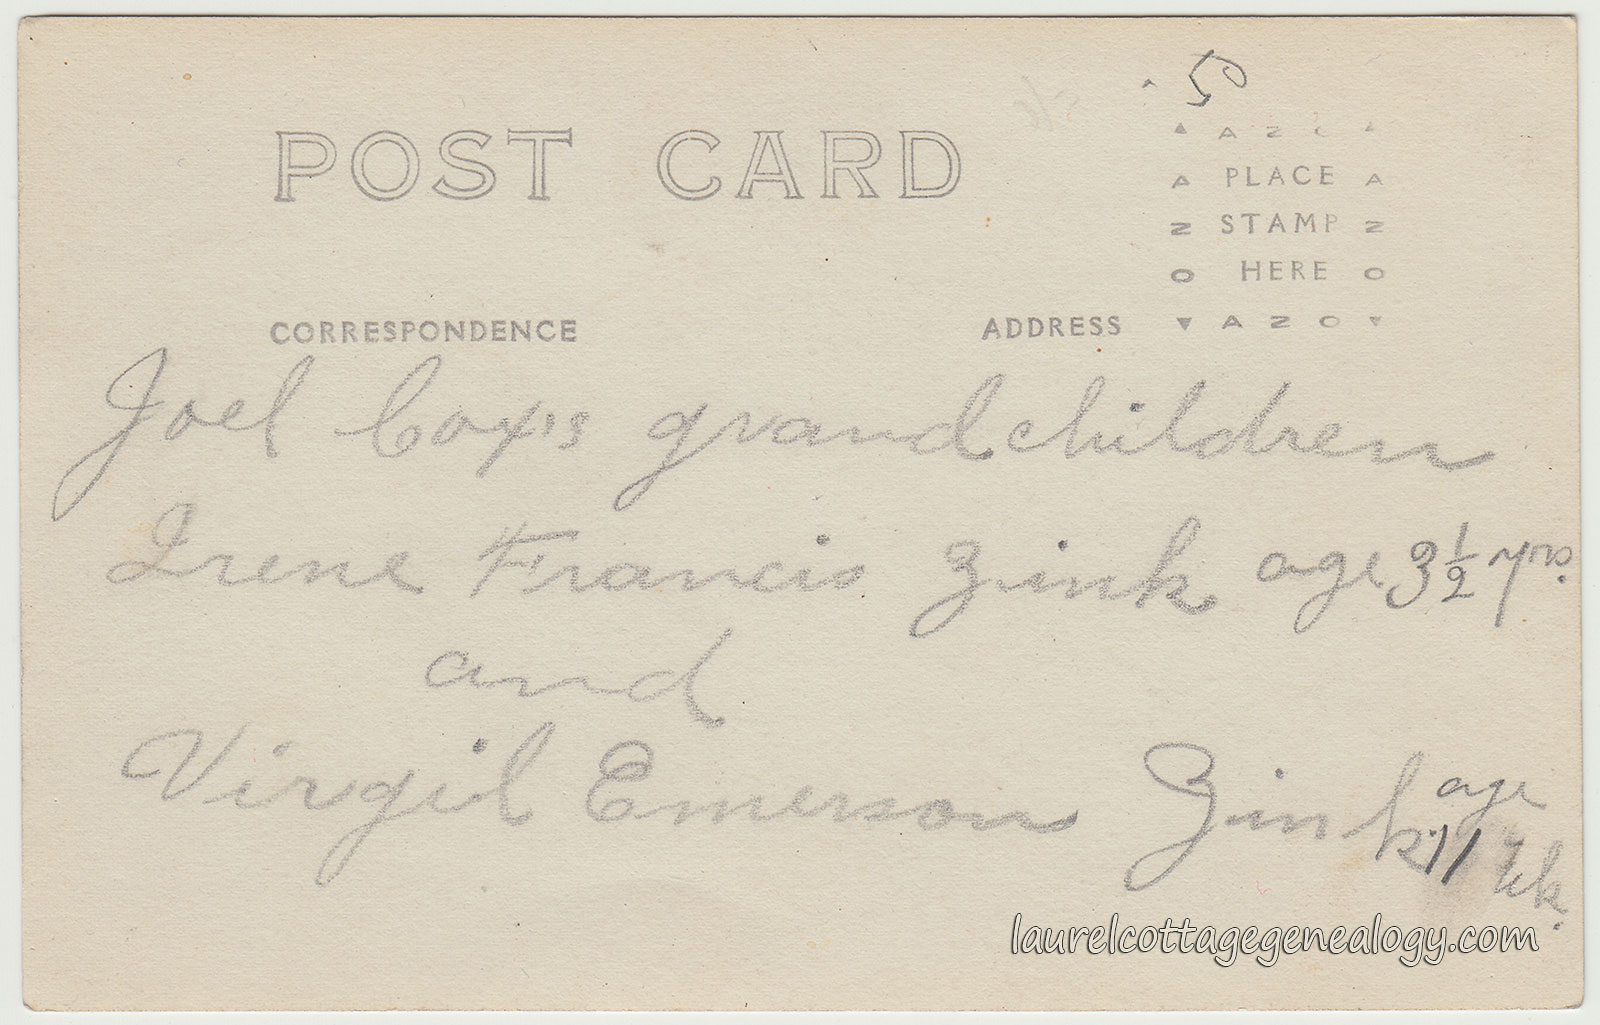 50
POST CARD
▲ A Z O ▲
A PLACE A
Z STAMP Z
O HERE O
CORRESPONDENCE
ADDRESS ▼ A Z O ▼
Joel Cox's grandchildren
Irene Francis Zink age 3½ yrs.
and
Virgil Emerson Zink age
11 wk.
laurelcottagegenealogy.com